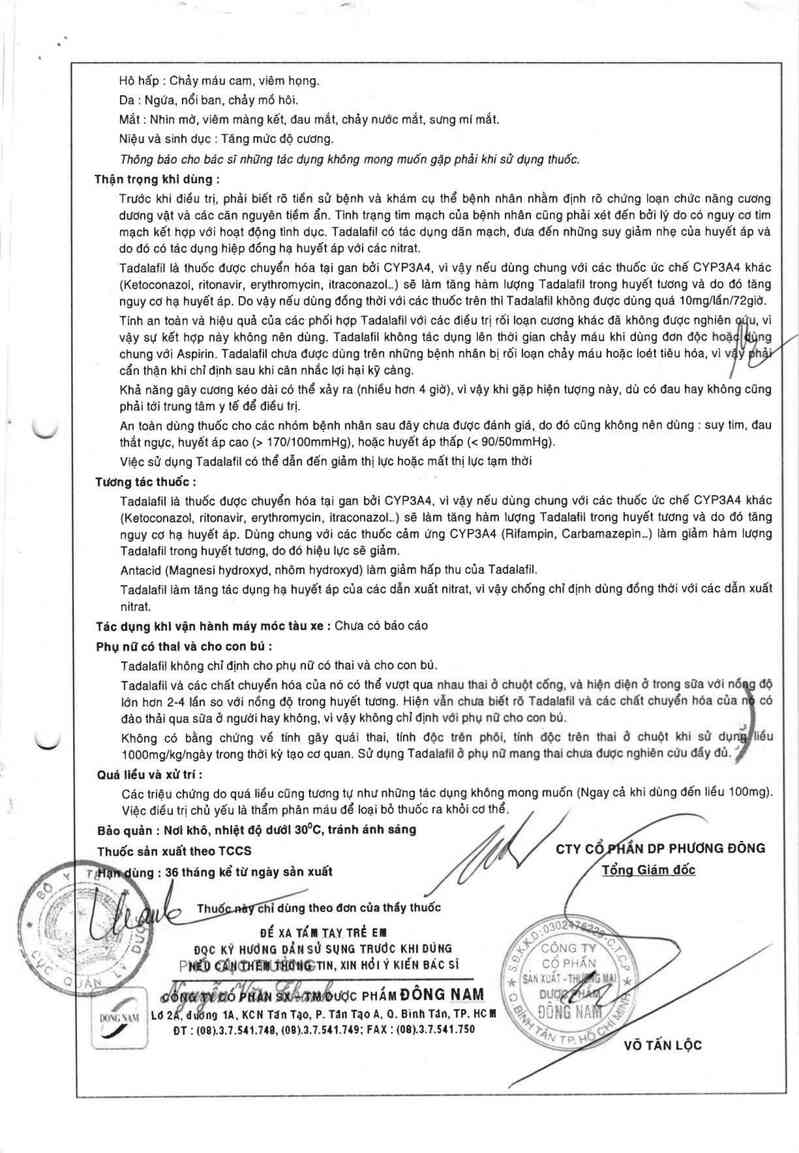 Hô hấp : Chảy máu cam, viêm họng.
Da : Ngứa, nổi ban, chảy mồ hôi.
Mắt : Nhìn mờ, viêm màng kết, đau mắt, chảy nước mắt, sưng mí mắt.
Niệu và sinh dục : Tăng mức độ cương.
Thông báo cho bác sĩ những tác dụng không mong muốn gặp phải khi sử dụng thuốc.
Thận trọng khi dùng :
Trước khi điều trị, phải biết rõ tiền sử bệnh và khám cụ thể bệnh nhân nhằm định rõ chứng loạn chức năng cương
dương vật và các căn nguyên tiềm ẩn. Tình trạng tim mạch của bệnh nhân cũng phải xét đến bởi lý do có nguy cơ tim
mạch kết hợp với hoạt động tình dục. Tadalafil có tác dụng dãn mạch, đưa đến những suy giảm nhẹ của huyết áp và
do đó có tác dụng hiệp đồng hạ huyết áp với các nitrat.
Tadalafil là thuốc được chuyển hóa tại gan bởi CYP3A4, vì vậy nếu dùng chung với các thuốc ức chế CYP3A4 khác
(Ketoconazol, ritonavir, erythromycin, itraconazol..) sẽ làm tăng hàm lượng Tadalafil trong huyết tương và do đó tăng
nguy cơ hạ huyết áp. Do vậy nếu dùng đồng thời với các thuốc trên thì Tadalafil không được dùng quá 10mg/lần/72giờ.
Tính an toàn và hiệu quả của các phối hợp Tadalafil với các điều trị rối loạn cương khác đã không được nghiên cứu, vì
vậy sự kết hợp này không nên dùng. Tadalafil không tác dụng lên thời gian chảy máu khi dùng đơn độc hoặc dùng
chung với Aspirin. Tadalafil chưa được dùng trên những bệnh nhân bị rối loạn chảy máu hoặc loét tiêu hóa, vì vậy phải
cẩn thận khi chỉ định sau khi cân nhắc lợi hại kỹ càng.
Khả năng gây cương kéo dài có thể xảy ra (nhiều hơn 4 giờ), vì vậy khi gặp hiện tượng này, dù có đau hay không cũng
phải tới trung tâm y tế để điều trị.
An toàn dùng thuốc cho các nhóm bệnh nhân sau đây chưa được đánh giá, do đó cũng không nên dùng : suy tim, đau
thắt ngực, huyết áp cao (> 170/100mmHg), hoặc huyết áp thấp (< 90/50mmHg).
Việc sử dụng Tadalafil có thể dẫn đến giảm thị lực hoặc mất thị lực tạm thời
Tương tác thuốc :
Tadalafil là thuốc được chuyển hóa tại gan bởi CYP3A4, vì vậy nếu dùng chung với các thuốc ức chế CYP3A4 khác
(Ketoconazol, ritonavir, erythromycin, itraconazol..) sẽ làm tăng hàm lượng Tadalafil trong huyết tương và do đó tăng
nguy cơ hạ huyết áp. Dùng chung với các thuốc cảm ứng CYP3A4 (Rifampin, Carbamazepin..) làm giảm hàm lượng
Tadalafil trong huyết tương, do đó hiệu lực sẽ giảm.
Antacid (Magnesi hydroxyd, nhôm hydroxyd) làm giảm hấp thu của Tadalafil.
Tadalafil làm tăng tác dụng hạ huyết áp của các dẫn xuất nitrat, vì vậy chống chỉ định dùng đồng thời với các dẫn xuất
nitrat.
Tác dụng khi vận hành máy móc tàu xe : Chưa có báo cáo
Phụ nữ có thai và cho con bú :
Tadalafil không chỉ định cho phụ nữ có thai và cho con bú.
Tadalafil và các chất chuyển hóa của nó có thể vượt qua nhau thai ở chuột cống, và hiện diện ở trong sữa với nồng độ
lớn hơn 2-4 lần so với nồng độ trong huyết tương. Hiện vẫn chưa biết rõ Tadalafil và các chất chuyển hóa của nó có
đào thải qua sữa ở người hay không, vì vậy không chỉ định với phụ nữ cho con bú.
Không có bằng chứng về tính gây quái thai, tính độc trên phôi, tính độc trên thai ở chuột khi sử dụng liều
1000mg/kg/ngày trong thời kỳ tạo cơ quan. Sử dụng Tadalafil ở phụ nữ mang thai chưa được nghiên cứu đầy đủ.
Quá liều và xử trí :
Các triệu chứng do quá liều cũng tương tự như những tác dụng không mong muốn (Ngay cả khi dùng đến liều 100mg).
Việc điều trị chủ yếu là thẩm phân máu để loại bỏ thuốc ra khỏi cơ thể.
Bảo quản : Nơi khô, nhiệt độ dưới 30⁰C, tránh ánh sáng
Thuốc sản xuất theo TCCS
CTY CỔ PHẦN DP PHƯƠNG ĐÔNG
Hạn dùng : 36 tháng kể từ ngày sản xuất
Tổng Giám đốc
BỘ Y TẾ
CỤC QUẢN LÝ DƯỢC
Thuốc này chỉ dùng theo đơn của thầy thuốc
ĐỂ XA TẦM TAY TRẺ EM
ĐỌC KỸ HƯỚNG DẪN SỬ SỤNG TRƯỚC KHI DÙNG
NẾU CẦN THÊM THÔNG TIN, XIN HỎI Ý KIẾN BÁC SĨ
S.Đ.K.K.D:0302475228-C.T.C.P
CÔNG TY
CỔ PHẦN
SẢN XUẤT - THƯƠNG MẠI
DƯỢC PHẨM
ĐÔNG NAM
Q. BÌNH TÂN TP. HỒ CHÍ MINH
DONG NAM
CÔNG TY CỔ PHẦN SX - TM DƯỢC PHẨM ĐÔNG NAM
Lô 2A, đường 1A, KCN Tân Tạo, P. Tân Tạo A, Q. Bình Tân, TP. HCM
ĐT : (08).3.7.541.748, (08).3.7.541.749; FAX : (08).3.7.541.750
VÕ TẤN LỘC